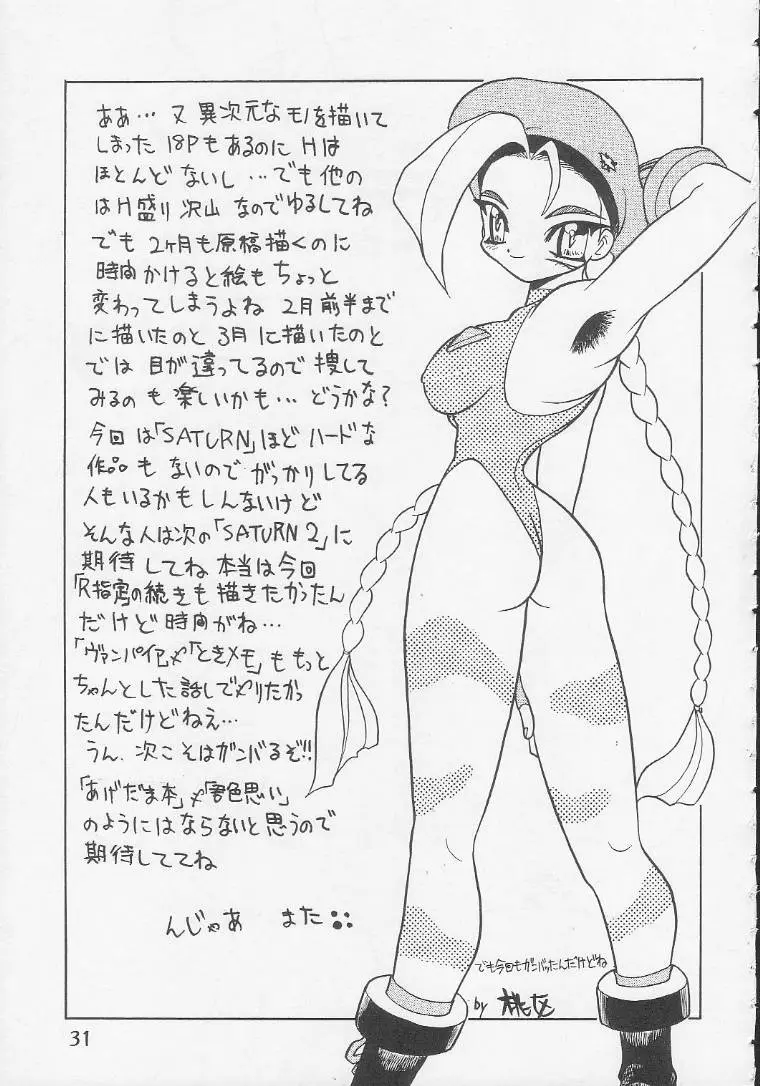 ああ… 又 異次元な モノを描いて
しまった 18Pもあるのに Hは
ほとんど ないし …でも他の
はH盛り沢山 なのでゆるしてね
でも 2ヶ月も原稿描くのに
時間かけると絵もちょっと
変わってしまうよね 2月前半まで
に描いたのと 3月に描いたのと
では 目が違ってるので捜して
みるのも楽しいかも… どうかな?
今回は「SATURN」ほど ハードな
作品も ないので がっかりしてる
人もいるかもしんないけど
そんな人は次の「SATURN 2」に
期待 してね 本当は今回
「R指定の続きも描きたかったん
だけど時間がね…
「ヴァンパイア」や「ときメモ」ももっと
ちゃんとした話しでやりたかっ
たんだけどねえ…
うん、次こそはガンバるぞ!!
「あげだま本」や「君色思い」
のようにはならないと思うので
期待しててね
んじゃあ また
でも今回もガンバったんだけどね
by
31